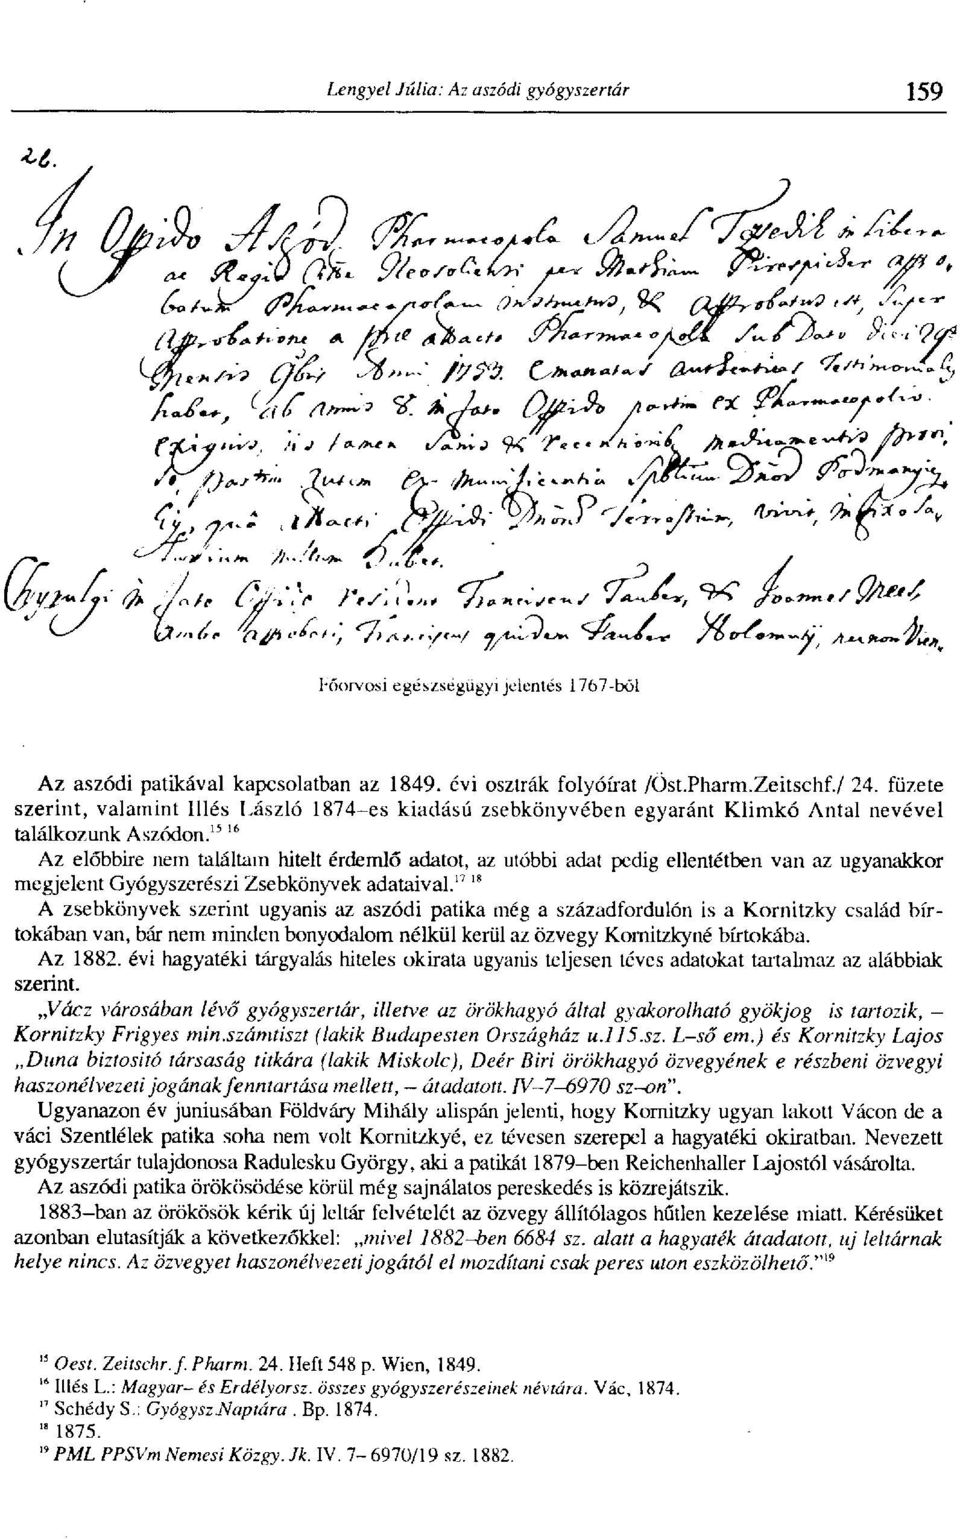 Lengyel Júlia: Az aszódi gyógyszertár 159
26.
In Oppido Aszód. Pharmacopola Samuel Tessedik in Libera
ac Regia Neosoliensi per Mathiam appro,
batum Pharmacopolam instructus, & Approbatus est, super
Approbatione a Pharmacopola sub Dato
1753. Emanatas Authenticas Testimoniales
habet, ab annis 8. in fato Oppido partim ex Pharmacopolio
exiguo, iis tamen Sanis & recentioribus medicamentis
partim ex Munificentia Podmanyiczky,
qua Oppidi Terrestrium, vivit, fixo Sa,
larium nullum habet.
Chyrurgi in fato resident Franciscus Tauber, & Joannes
Ambo Franciscus quidem Tauber
Főorvosi egészségügyi jelentés 1767-ból
Az aszódi patikával kapcsolatban az 1849. évi osztrák folyóírat /Öst.Pharm.Zeitschf./ 24. füzete
szerint, valamint Illés László 1874-es kiadású zsebkönyvében egyaránt Klimkó Antal nevével
találkozunk Aszódon.¹⁵ ¹⁶
Az előbbire nem találtam hitelt érdemlő adatot, az utóbbi adat pedig ellentétben van az ugyanakkor
megjelent Gyógyszerészi Zsebkönyvek adataival.¹⁷ ¹⁸
A zsebkönyvek szerint ugyanis az aszódi patika még a századfordulón is a Kornitzky család bír-
tokában van, bár nem minden bonyodalom nélkül kerül az özvegy Kornitzkyné bírtokába.
Az 1882. évi hagyatéki tárgyalás hiteles okirata ugyanis teljesen téves adatokat tartalmaz az alábbiak
szerint.
„Vácz városában lévő gyógyszertár, illetve az örökhagyó által gyakorolható gyökjog is tartozik, –
Kornitzky Frigyes min.számtiszt (lakik Budapesten Országház u.115.sz. L-ső em.) és Kornitzky Lajos
„Duna biztositó társaság titkára (lakik Miskolc), Deér Biri örökhagyó özvegyének e részbeni özvegyi
haszonélvezeti jogának fenntartása mellett, – átadatott. IV-7-6970 sz-on".
Ugyanazon év juniusában Földváry Mihály alispán jelenti, hogy Kornitzky ugyan lakott Vácon de a
váci Szentlélek patika soha nem volt Kornitzkyé, ez tévesen szerepel a hagyatéki okiratban. Nevezett
gyógyszertár tulajdonosa Radulesku György, aki a patikát 1879-ben Reichenhaller Lajostól vásárolta.
Az aszódi patika örökösödése körül még sajnálatos pereskedés is közrejátszik.
1883-ban az örökösök kérik új leltár felvételét az özvegy állítólagos hűtlen kezelése miatt. Kérésüket
azonban elutasítják a következőkkel: „mivel 1882-ben 6684 sz. alatt a hagyaték átadatott, uj leltárnak
helye nincs. Az özvegyet haszonélvezeti jogától el mozdítani csak peres uton eszközölhető."¹⁹
¹⁵ Oest. Zeitschr. f. Pharm. 24. Heft 548 p. Wien, 1849.
¹⁶ Illés L.: Magyar- és Erdélyorsz. összes gyógyszerészeinek névtára. Vác, 1874.
¹⁷ Schédy S.: Gyógysz.Naptára . Bp. 1874.
¹⁸ 1875.
¹⁹ PML PPSVm Nemesi Közgy. Jk. IV. 7- 6970/19 sz. 1882.